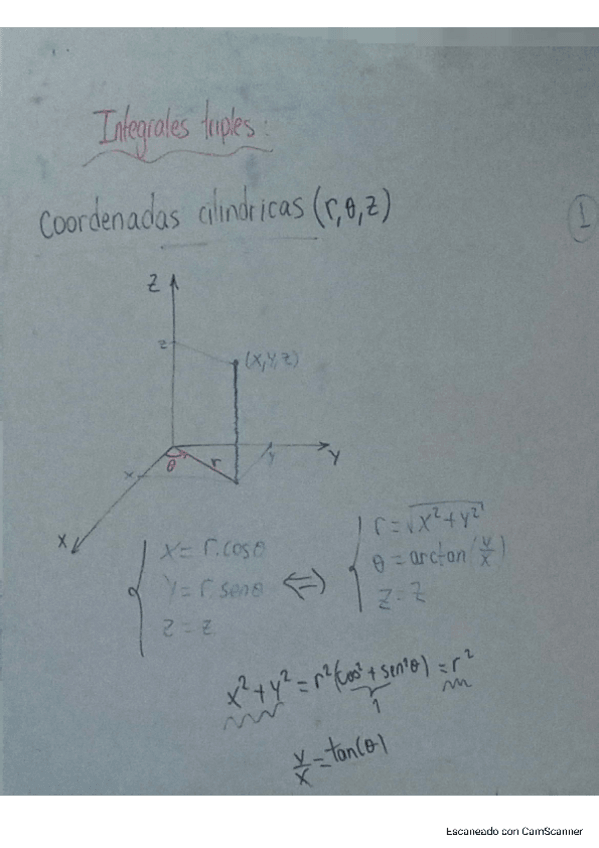 Integrales triples:
Coordenadas cilindricas (r,θ,z)
1
z
z
(x,y,z)
θ
r
x
y
y
x
x = r.cosθ
y = r.senθ
z = z
⟺
r = √x²+y²
θ = arctan(y/x)
z = z
x²+y² = r²(cos²+sen²θ) = r²
1
y/x = tan(θ)
Escaneado con CamScanner